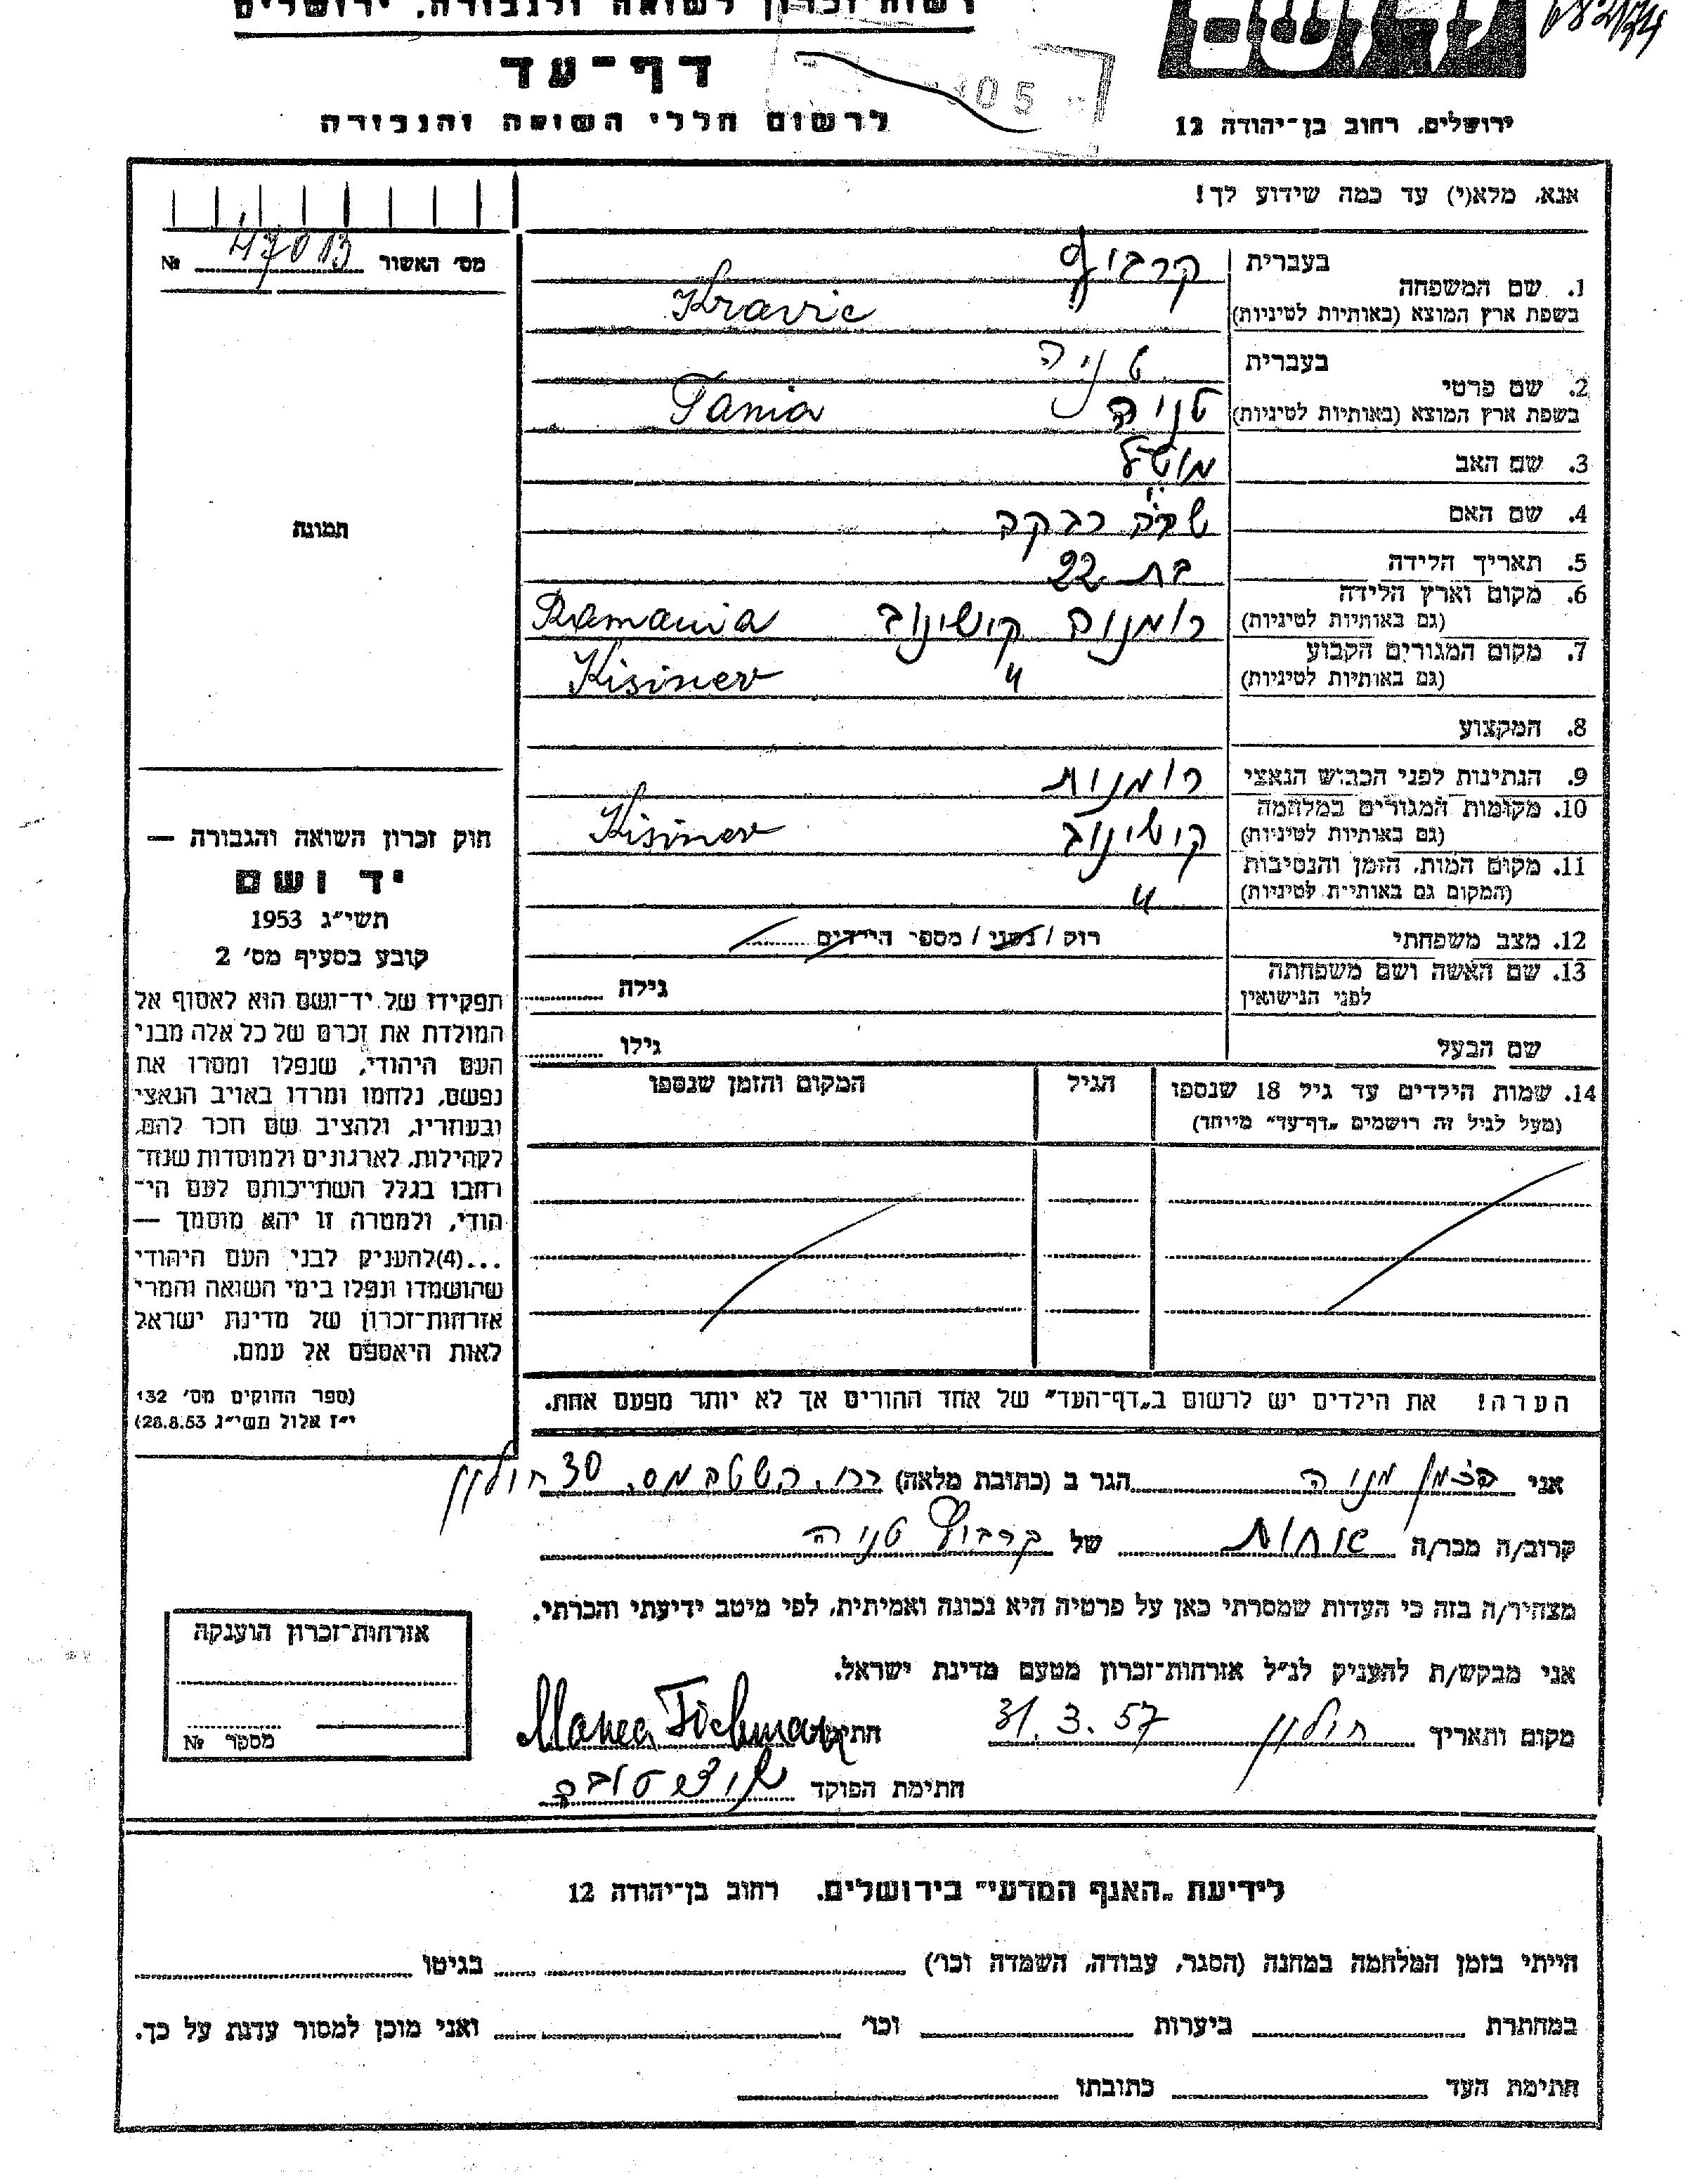 רשות זכרון לשואה ולגבורה, ירושלים
דף-עד
לרשום חללי השואה והגבורה
ירושלים, רחוב בן-יהודה 12
אנא, מלא(י) עד כמה שידוע לך!
מס' האשור 47013 №
תמונה
1. שם המשפחה
בעברית קרביץ
בשפת ארץ המוצא (באותיות לטיניות) Kravic
2. שם פרטי
בעברית טניה
בשפת ארץ המוצא (באותיות לטיניות) טניה Tania
3. שם האב מוטל
4. שם האם שרה רבקה
5. תאריך הלידה בת 22
6. מקום וארץ הלידה
(גם באותיות לטיניות) רומניה קישינוב Romania
7. מקום המגורים הקבוע
(גם באותיות לטיניות) " Kisinev
8. המקצוע
9. הנתינות לפני הכבוש הנאצי רומנית
10. מקומות המגורים במלחמה
(גם באותיות לטיניות) קישינוב Kisinev
11. מקום המות, הזמן והנסיבות
(המקום גם באותיות לטיניות) "
12. מצב משפחתי רווק / נשוי / מספר הילדים
13. שם האשה ושם משפחתה
לפני הנישואין גילה
שם הבעל גילו
14. שמות הילדים עד גיל 18 שנספו
(מעל לגיל זה רושמים "דף-עד" מיוחד)
הגיל
המקום והזמן שנספו
הערה! את הילדים יש לרשום ב"דף-העד" של אחד ההורים אך לא יותר מפעם אחת.
חוק זכרון השואה והגבורה —
יד ושם
תשי"ג 1953
קובע בסעיף מס' 2
תפקידו של יד-ושם הוא לאסוף אל
המולדת את זכרם של כל אלה מבני
העם היהודי, שנפלו ומסרו את
נפשם, נלחמו ומרדו באויב הנאצי
ובעוזריו, ולהציב שם וזכר להם,
לקהילות, לארגונים ולמוסדות שנח-
רבו בגלל השתייכותם לעם הי-
הודי, ולמטרה זו יהא מוסמך —
...(4)להעניק לבני העם היהודי
שהושמדו ונפלו בימי השואה והמרי
אזרחות-זכרון של מדינת ישראל
לאות היאספם אל עמם.
(ספר החוקים מס' 132
י"ז אלול תשי"ג 28.8.53)
אני פיכמן מניה הגר ב (כתובת מלאה) 30 חולון
קרוב/ה מכר/ה אחות של קרביץ טניה
מצהיר/ה בזה כי העדות שמסרתי כאן על פרטיה היא נכונה ואמיתית, לפי מיטב ידיעתי והכרתי.
אני מבקש/ת להעניק לנ"ל אזרחות-זכרון מטעם מדינת ישראל.
מקום ותאריך חולון 31.3.57 חתימה Manea Fichman
חתימת הפוקד
אזרחות-זכרון הוענקה
מספר №
לידיעת "האגף המדעי" בירושלים. רחוב בן-יהודה 12
הייתי בזמן המלחמה במחנה (הסגר, עבודה, השמדה וכו') בגיטו
במחתרת ביערות וכו' ואני מוכן למסור עדות על כך.
חתימת העד כתובתו